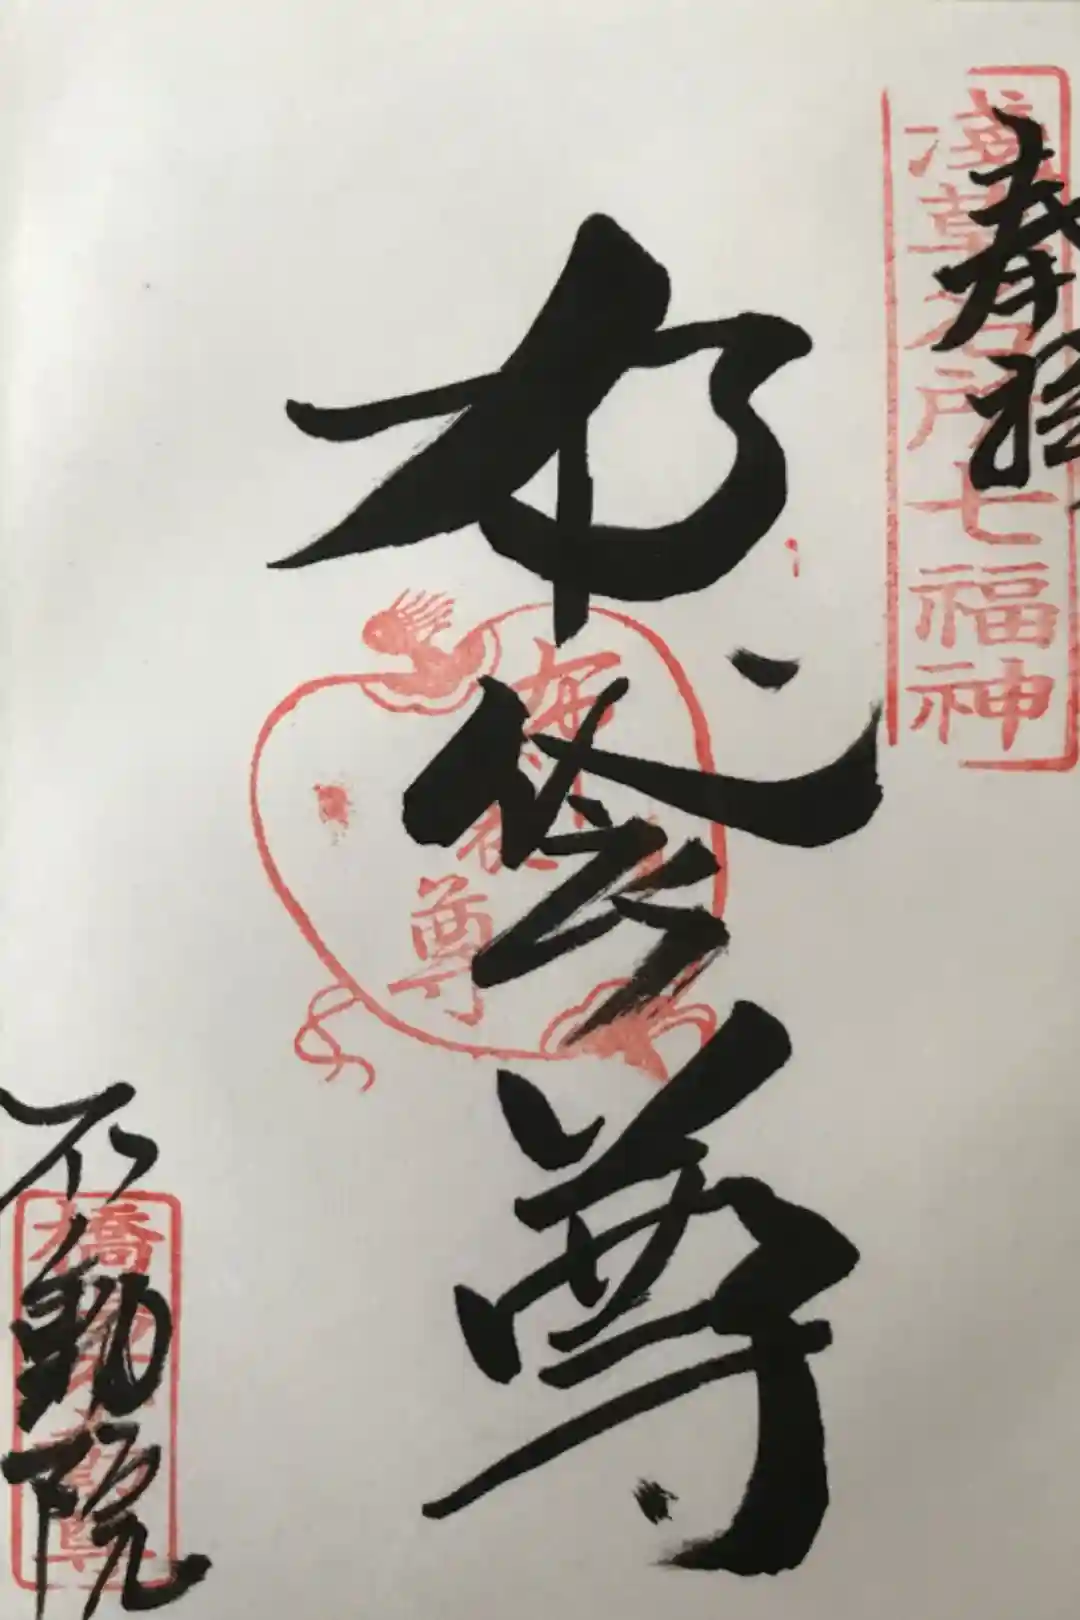 奉拝
浅草名所七福神
布袋尊
布袋尊
不動院
橋場不動尊